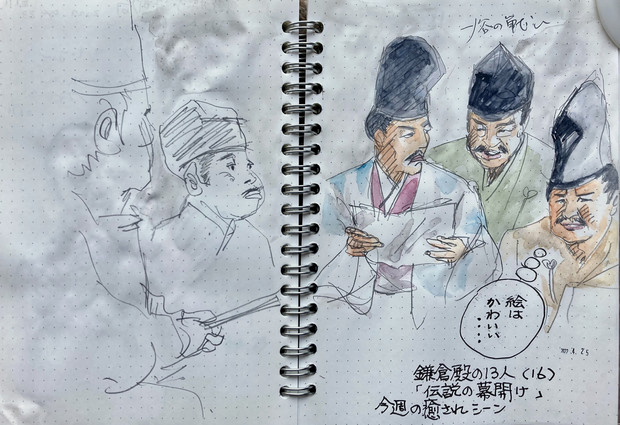 一ノ谷の戦い
絵は
かわいい
・・・・
鎌倉殿の13人（16）
「伝説の幕開け」
今週の癒されシーン